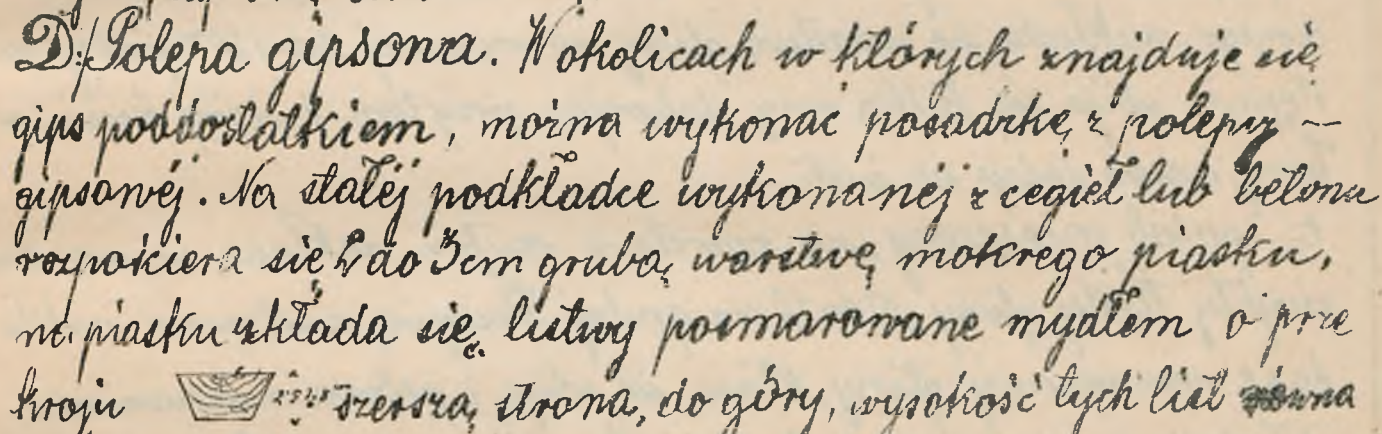 D:/Polepa gipsowa. W okolicach w których znajduje się
gips poddostatkiem, można wykonać posadzkę z polepy —
gipsowéj. Na stałéj podkładce wykonanéj z cegieł lub betonu
rozpościera się 2 do 3cm grubą warstwę mokrego piasku,
na piasku układa się listwy posmarowane mydłem o prze
kroju szerszą stroną do góry, wysokość tych list równa